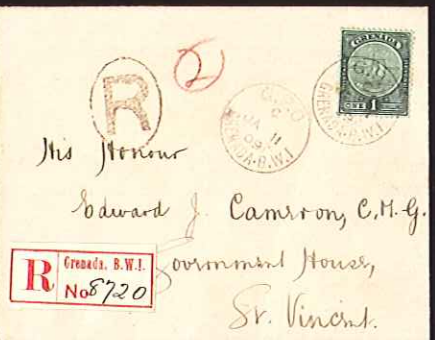 GRENADA
1
R
2
G.P.O
C
MA 11
09
GRENADA·B.W.I
G.P.O
GRENADA·B.W.I
His Honour
Edward J. Cameron, C.M.G.
Government House,
St. Vincent.
R
Grenada, B.W.I.
No 8720